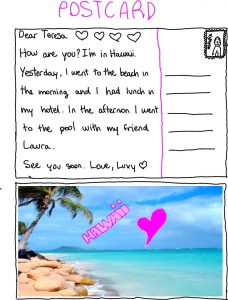 POSTCARD
Dear Teresa
How are you? I'm in Hawaii.
Yesterday, I went to the beach in
the morning and I had lunch in
my hotel. In the afternoon I went
to the pool with my friend
Laura.
See you soon. Love, Luxy
HAWAII